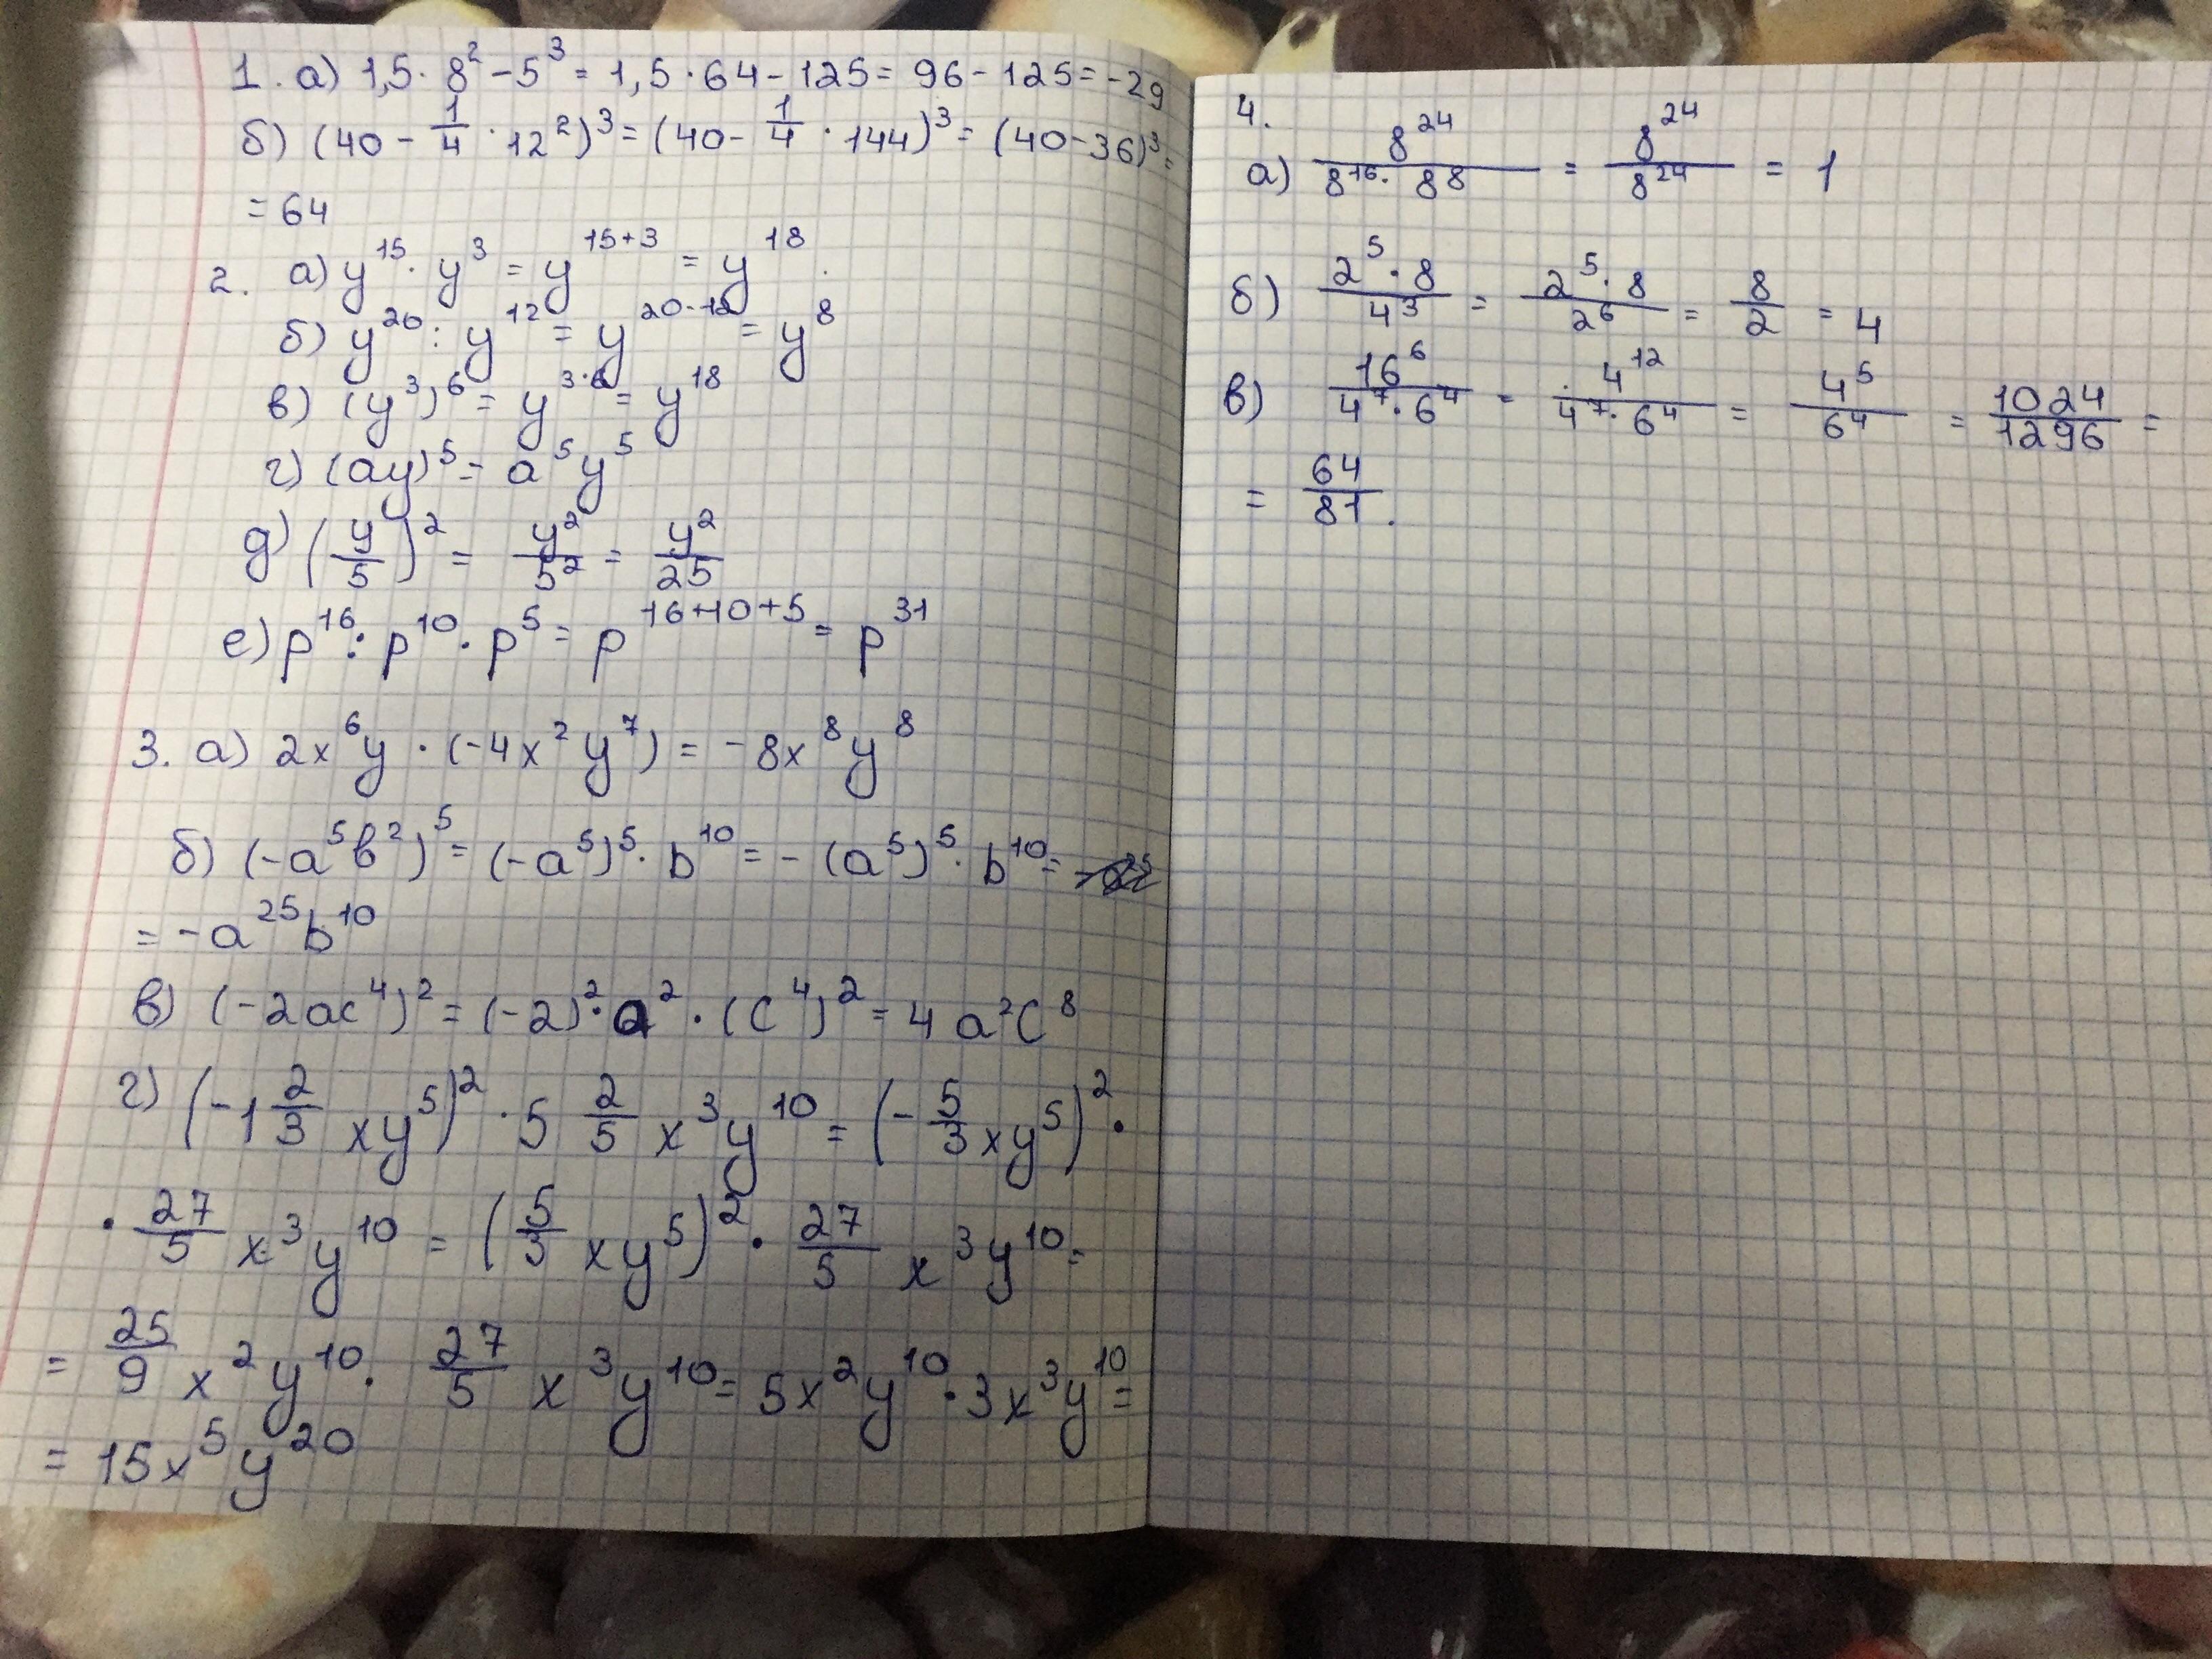 1. а) 1,5 · 8² − 5³ = 1,5 · 64 − 125 = 96 − 125 = −29
б) (40 − 1/4 · 12²)³ = (40 − 1/4 · 144)³ = (40 − 36)³ =
= 64
2. а) y¹⁵ · y³ = y¹⁵⁺³ = y¹⁸.
б) y²⁰ : y¹² = y²⁰⁻¹² = y⁸
в) (y³)⁶ = y³·⁶ = y¹⁸
г) (ay)⁵ = a⁵y⁵
д) (y/5)² = y²/5² = y²/25
е) p¹⁶ : p¹⁰ · p⁵ = p¹⁶⁺¹⁰⁺⁵ = p³¹
3. а) 2x⁶y · (−4x²y⁷) = −8x⁸y⁸
б) (−a⁵b²)⁵ = (−a⁵)⁵ · b¹⁰ = −(a⁵)⁵ · b¹⁰ =
= −a²⁵b¹⁰
в) (−2ac⁴)² = (−2)² · a² · (c⁴)² = 4a²c⁸
г) (−1 2/3 xy⁵)² · 5 2/5 x³y¹⁰ = (−5/3 xy⁵)² ·
· 27/5 x³y¹⁰ = (5/3 xy⁵)² · 27/5 x³y¹⁰ =
= 25/9 x²y¹⁰ · 27/5 x³y¹⁰ = 5x²y¹⁰ · 3x³y¹⁰ =
= 15x⁵y²⁰
4.
а) 8²⁴/(8¹⁶ · 8⁸) = 8²⁴/8²⁴ = 1
б) (2⁵ · 8)/4³ = (2⁵ · 8)/2⁶ = 8/2 = 4
в) 16⁶/(4⁷ · 6⁴) = 4¹²/(4⁷ · 6⁴) = 4⁵/6⁴ = 1024/1296 =
= 64/81.